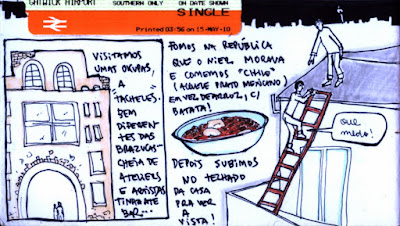 GATWICK AIRPORT SOUTHERN ONLY ON DATE SHOWN
SINGLE
Printed 03:56 on 15-MAY-10
VISITAMOS
UMAS OKUPAS,
A
TACHELES.
BEM
DIFEREN-
TES DAS
BRAZUCAS-
CHEIA DE
ATELIERS
E ARTISTAS
TINHA ATÉ
BAR...
FOMOS NA REPÚBLICA
QUE O NIER MORAVA
E COMEMOS "CHILE"
(AQUELE PRATO MEXICANO)
EM VEZ DE ARROZ, C/
BATATA!
DEPOIS SUBIMOS
NO TELHADO
DA CASA
PRA VER
A
VISTA!
QUE
MEDO!